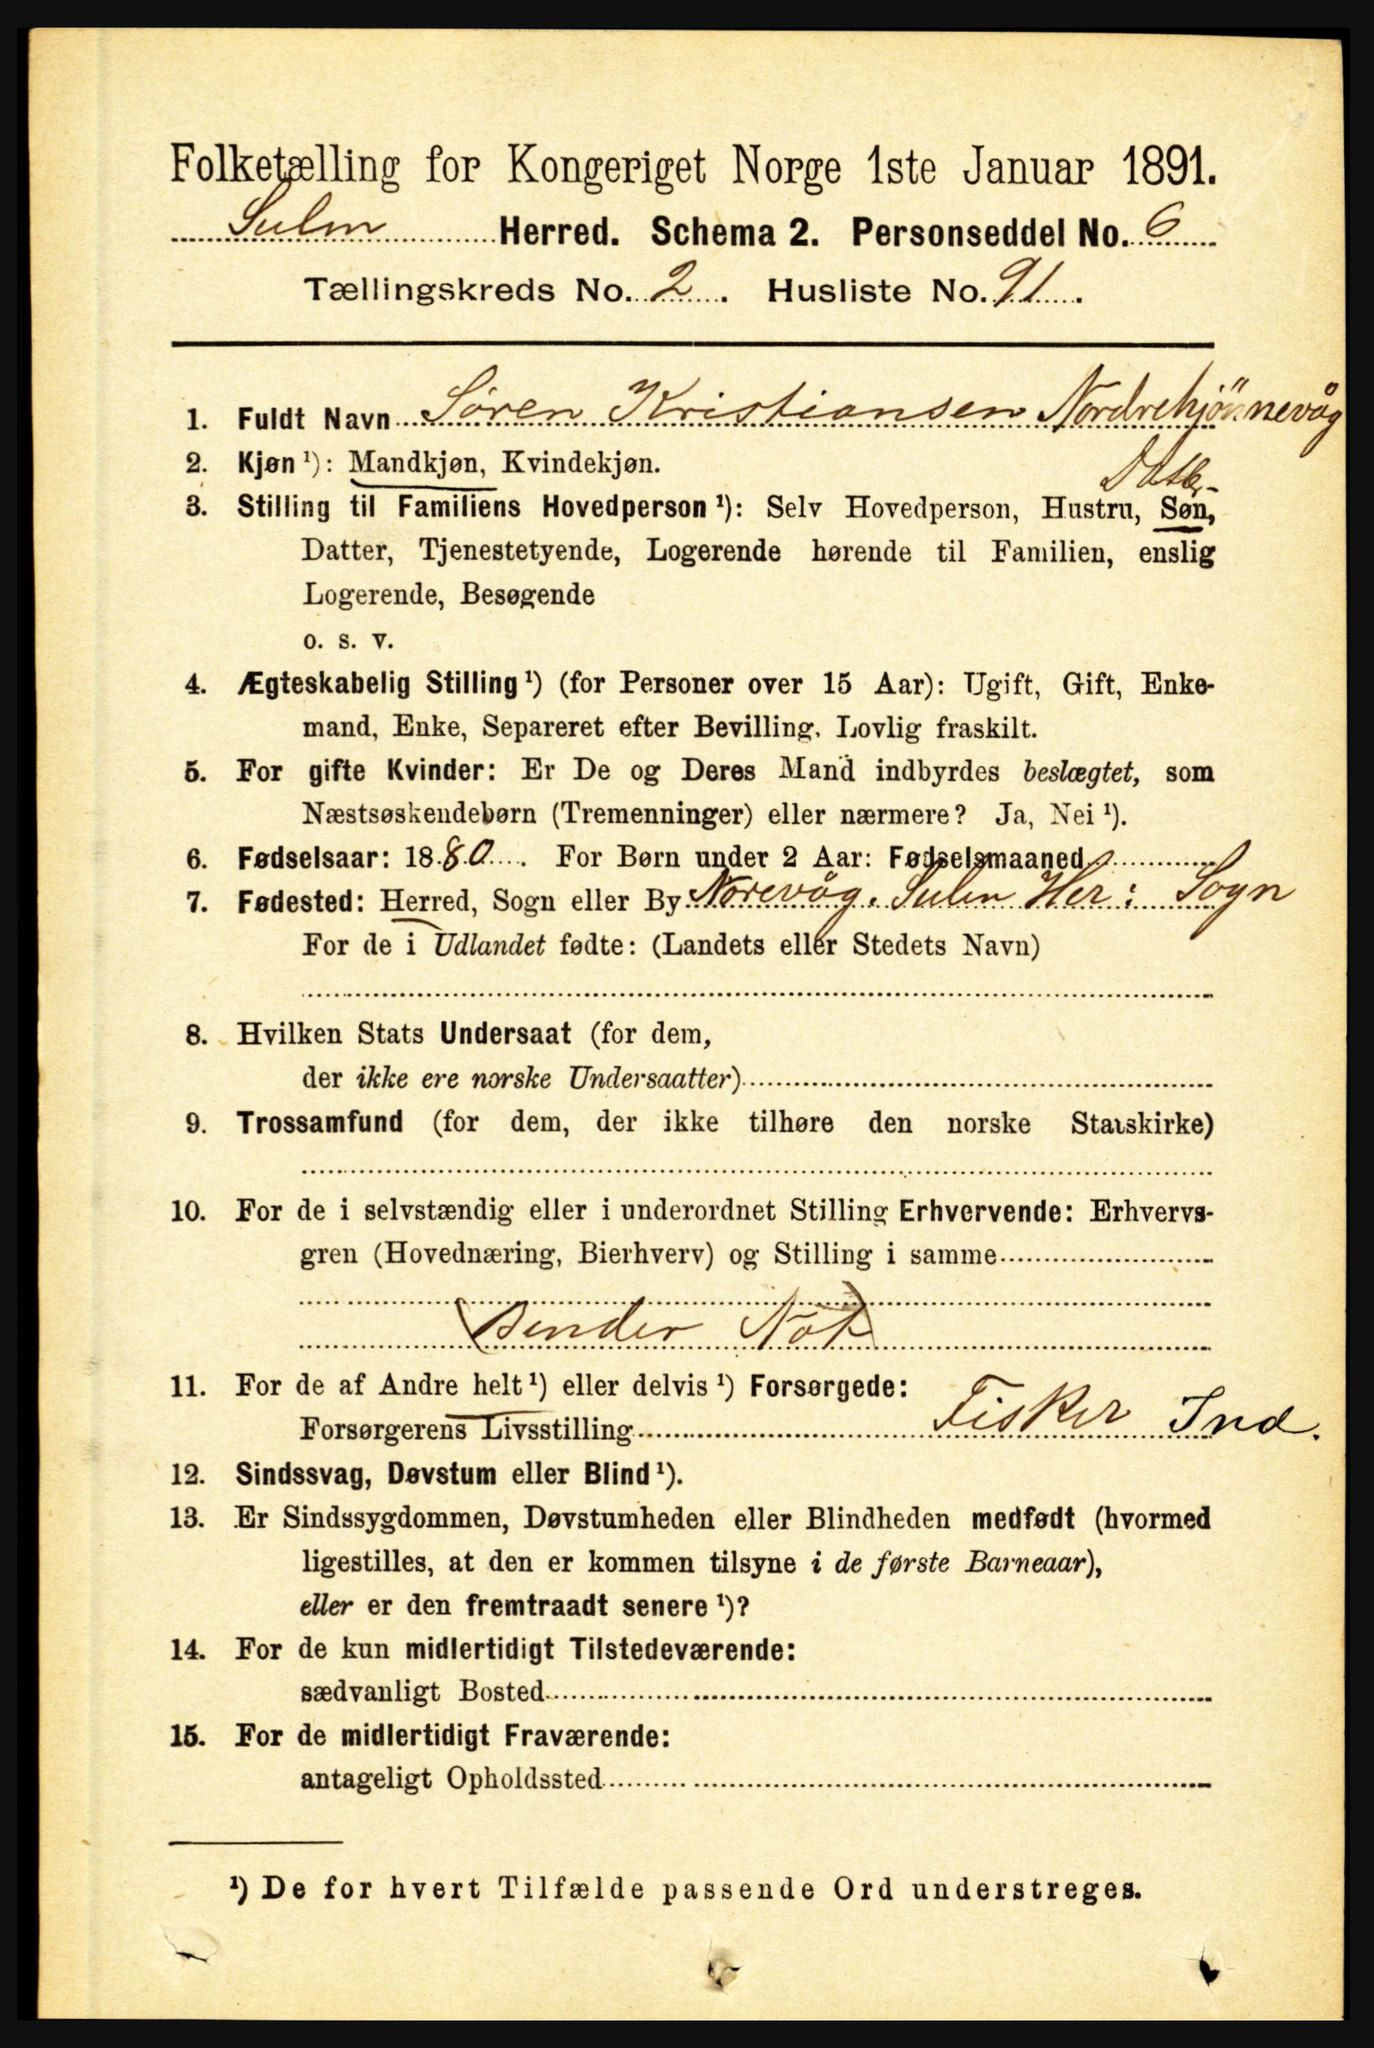 Folketælling for Kongeriget Norge 1ste Januar 1891.
Sulen Herred. Schema 2. Personseddel No. 6
Tællingskreds No. 2. Husliste No. 91.
1. Fuldt Navn Søren Kristiansen Nordrehjønnevåg
2. Kjøn ¹): Mandkjøn, Kvindekjøn.
3. Stilling til Familiens Hovedperson ¹): Selv Hovedperson, Hustru, Søn,
Datter, Tjenestetyende, Logerende hørende til Familien, enslig
Logerende, Besøgende
o. s. v.
4. Ægteskabelig Stilling ¹) (for Personer over 15 Aar): Ugift, Gift, Enke-
mand, Enke, Separeret efter Bevilling. Lovlig fraskilt.
5. For gifte Kvinder: Er De og Deres Mand indbyrdes beslægtet, som
Næstsøskendebørn (Tremenninger) eller nærmere? Ja, Nei ¹).
6. Fødselsaar: 1880. For Børn under 2 Aar: Fødselsmaaned
7. Fødested: Herred, Sogn eller By Norevåg. Sulen Her: Sogn
For de i Udlandet fødte: (Landets eller Stedets Navn)
8. Hvilken Stats Undersaat (for dem,
der ikke ere norske Undersaatter)
9. Trossamfund (for dem, der ikke tilhøre den norske Statskirke)
10. For de i selvstændig eller i underordnet Stilling Erhvervende: Erhvervs-
gren (Hovednæring, Bierhverv) og Stilling i samme
(Bender Not)
11. For de af Andre helt ¹) eller delvis ¹) Forsørgede:
Forsørgerens Livsstilling Fisker Ind.
12. Sindssvag, Døvstum eller Blind ¹).
13. Er Sindssygdommen, Døvstumheden eller Blindheden medfødt (hvormed
ligestilles, at den er kommen tilsyne i de første Barneaar),
eller er den fremtraadt senere ¹)?
14. For de kun midlertidigt Tilstedeværende:
sædvanligt Bosted
15. For de midlertidigt Fraværende:
antageligt Opholdssted
¹) De for hvert Tilfælde passende Ord understreges.